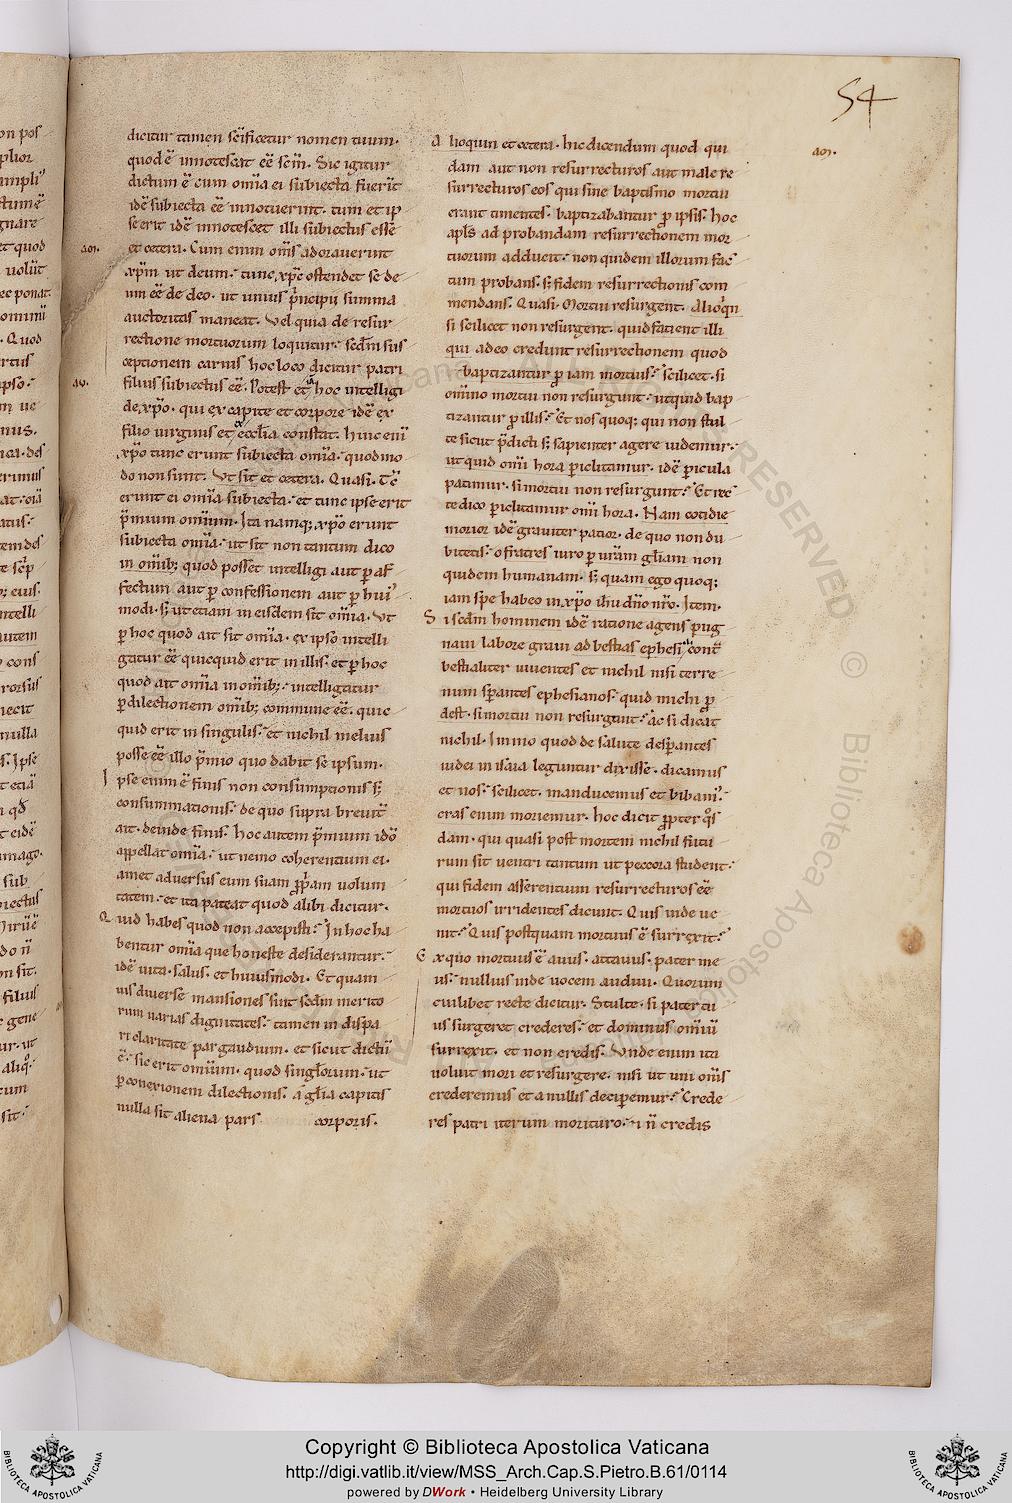 54
dicitur tamen sc̄ificetur nomen tuum.
quod ē innotescat eē sc̄m. Sic igitur
dictum ē cum om̄ia ei subiecta fuerīt
idē subiecta eē innotuerint. tum et ip
se erit idē innotescet illi subiectus essē
et cetera. Cum enim om̄s adorauerint
xp̄m ut deum. tunc xp̄c ostendet se de
um eē de deo. ut unius p̄ncipii summa
auctoritas maneat. Vel quia de resur
rectione mortuorum loquitur. scd̄m sus
ceptionem carnis hoc loco dicitur patri
filius subiectus eē. Potest et hoc intelligi
de xp̄o. qui ex capite et corpore idē ex
filio uirginis et ex ecc̄lia constat. hinc eni
xp̄o tunc erunt subiecta om̄ia. quodmo
do non sunt. Vt sit et cetera. Quasi. Tc̄
erunt ei om̄ia subiecta. et tunc ipse erit
p̄mium omnium. Ita namq; xp̄o erunt
subiecta om̄ia. ut sit non tantum dico
in om̄ib; quod posset intelligi aut p af
fectum aut p confessionem aut p hui
modi. s; ut etiam in eisdem sit om̄ia. Vt
p hoc quod ait sit om̄ia. ex ipso intelli
gatur eē quicquid erit in illis. et p hoc
quod ait om̄ia in om̄ib; intelligatur
p dilectionem om̄ib; commune eē. quic
quid erit in singulis. et nichil melius
posse eē illo p̄mio quo dabit se ipsum.
Ipse enim ē finis non consumptionis s;
consummationis. de quo supra breuit̄
ait. deinde finis. hoc autem p̄mium idō
appellat om̄ia. ut nemo coherentium ei.
amet aduersus eum suam pp̄am uolum
tatem. et ita pateat quod alibi dicitur.
Quid habes quod non accepisti. In hoc ha
bentur om̄ia que honeste desiderantur.
idē uita. salus. et huiusmodi. Et quam
uis diuerse mansiones sint scd̄m merito
rum uarias dignitates. tamen in dispa
ri claritate par gaudium. et sicut dictū
ē. sic erit omnium. quod singlorum. ut
p conexionem dilectionis. a gl̄ia capitis
nulla sit aliena pars corporis.
Alioquin et cetera. hic dicendum quod qui
dam aut non resurrecturos aut male re
surrecturos eos qui sine baptismo mortui
erant timentes. baptizabantur p ipsis. hoc
apl̄s ad probandam resurrectionem mor
tuorum adducit. non quidem illorum fac
tum probans. s; fidem resurrectionis com
mendans. Quasi. Mortui resurgent. Alioqn
si scilicet non resurgent. quid facient illi
qui adeo credunt resurrectionem quod
baptizantur p iam mortuis. scilicet. si
om̄ino mortui non resurgunt. ut quid bap
tizantur p illis. Et nos quoq; qui non stul
te sicut p̄dicti s; sapienter agere uidemur.
ut quid om̄i hora piclitamur. idē picula
patimur. si mortui non resurgunt. Et rec
te dico piclitamur om̄i hora. Nam cotidie
morior idē grauiter patior. de quo non du
bitetis. o fratres iuro p ur̄am gl̄iam non
quidem humanam. s; quam ego quoq;
iam spe habeo in xp̄o ih̄u dn̄o nr̄o. Item.
Si scd̄m hominem idē ratione agens pug
naui labore graui ad bestias ephesi cont̄
bestialiter uiuentes et nichil nisi terre
num sperantes ephesianos. quid michi p
dest. si mortui non resurgunt. Ac si dicat
nichil. Immo quod de salute desperantes
iudei in isaia leguntur dixisse. dicamus
et nos. scilicet. manducemus et bibam̄.
cras enim moriemur. hoc dicit ppter qōs
dam. qui quasi post mortem nichil futu
rum sit uentri tantum ut peccora student.
qui fidem asserentium resurrecturos eē
mortuos irridentes dicunt. Quis inde ue
nit. Quis postquam mortuus ē surrexit.
Ex quo mortuus ē auus. attauus. pater me
us. nullius inde uocem audiui. Quorum
cuilibet recte dicitur. Stulte. si pater tu
us surgeret crederes. et dominus om̄iū
surrexit. et non credis. Vnde enim ita
uoluit mori et resurgere. nisi ut uni om̄s
crederemus et a nullis deciperemur. Crede
res patri iterum morituro. et n̄ credis
Copyright © Biblioteca Apostolica Vaticana
http://digi.vatlib.it/view/MSS_Arch.Cap.S.Pietro.B.61/0114
powered by DWork • Heidelberg University Library
BIBLIOTECA APOSTOLICA VATICANA
BIBLIOTECA APOSTOLICA VATICANA